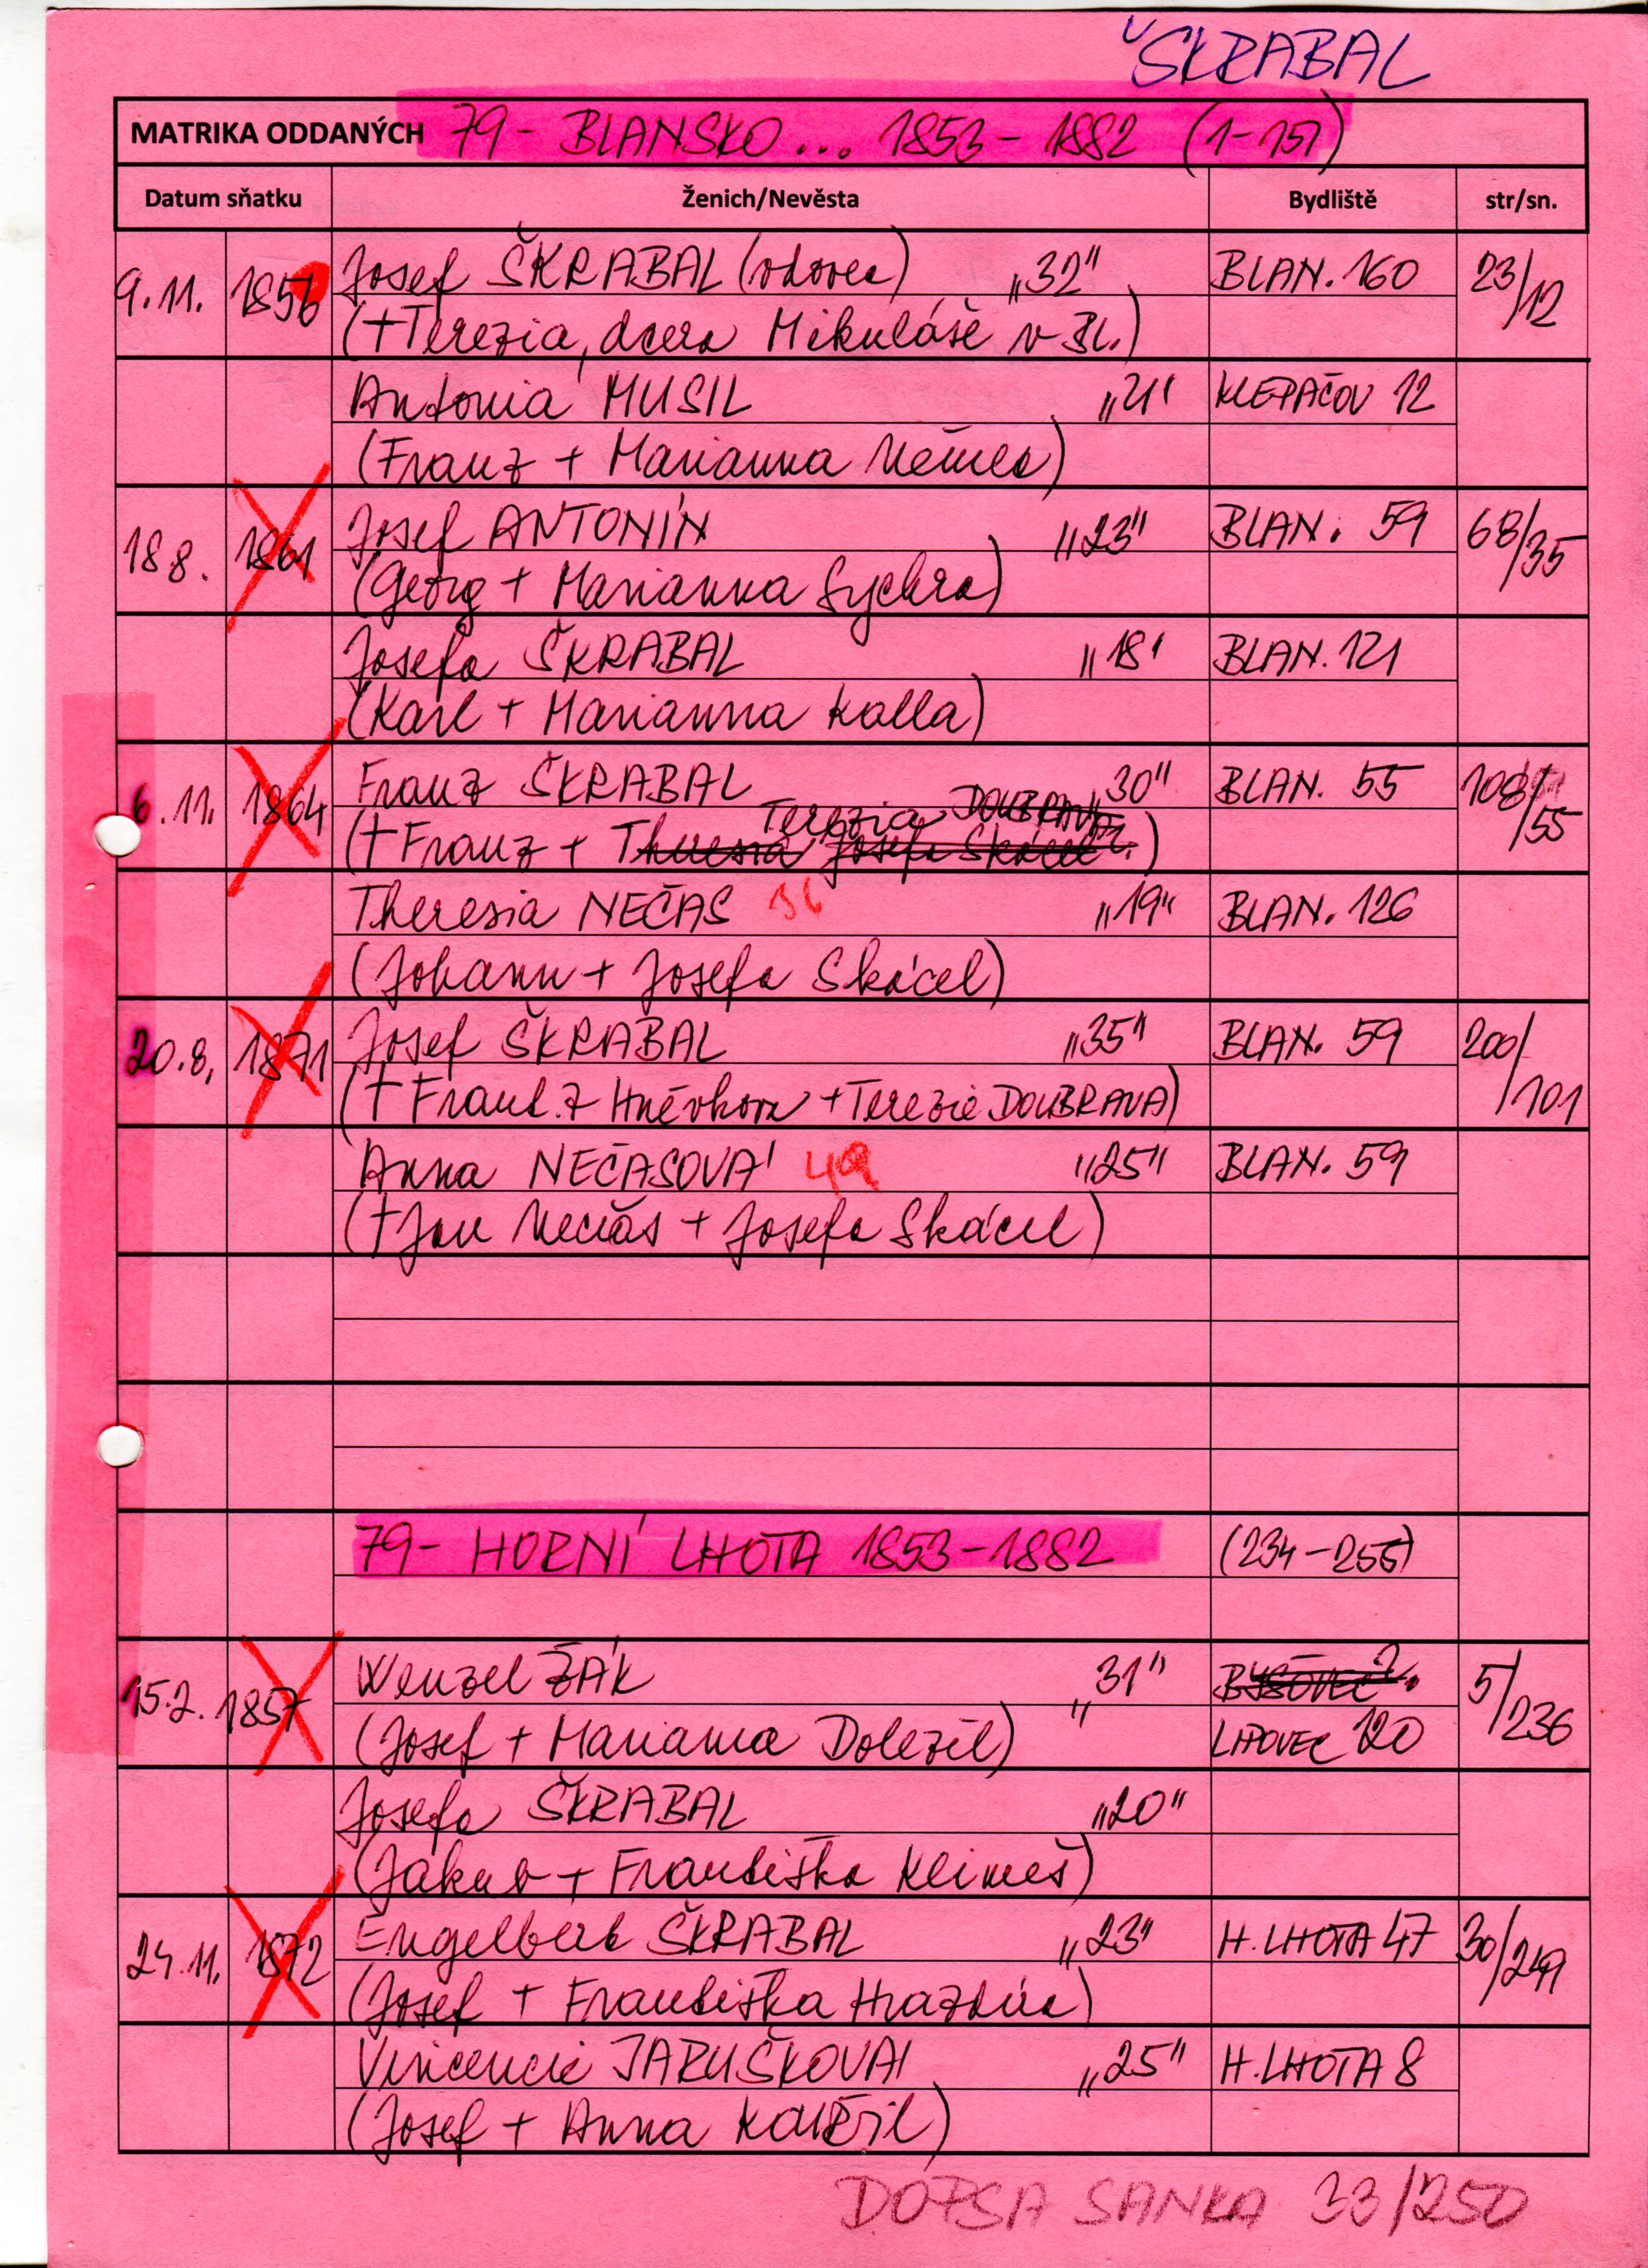 ŠKRABAL
MATRIKA ODDANÝCH 79 - BLANSKO ... 1853 - 1882 (1-151)
Datum sňatku Ženich/Nevěsta Bydliště str/sn.
9.11. 1856 Josef ŠKRABAL (vdovec) „32“ BLAN. 160 23/12
(+Terezia, dcera Mikuláše v Bl.)
Antonia MUSIL „21“ KLEPAČOV 12
(Franz + Marianna Němec)
18 8. 1861 Josef ANTONÍN „23“ BLAN. 59 68/35
(Georg + Marianna Sychra)
Josefa ŠKRABAL „18“ BLAN. 121
(Karl + Marianna Kalla)
6.11. 1864 Franz ŠKRABAL „30“ BLAN. 55 108/55
Terezia DOUBRAVA
(+ Franz + Theresia Josefa Skácel)
Theresia NEČAS 36 „19“ BLAN. 126
(Johann + Josefa Skácel)
20.8. 1871 Josef ŠKRABAL „35“ BLAN. 59 200/101
(+ Frant. z Hněvkova + Terezie DOUBRAVA)
Anna NEČASOVÁ „25“ BLAN. 59
(+Jan Nečas + Josefa Skácel)
79 - HORNÍ LHOTA 1853-1882 (234-255)
15.2. 1857 Wenzel ŽÁK „31“ BYŠOVEC ?
(Josef + Marianna Doležel) LIPOVEC 120 5/236
Josefa ŠKRABAL „20“
(Jakub + Františka Klimeš)
24.11. 1872 Engelbert ŠKRABAL „23“ H. LHOTA 47 30/249
(Josef + Františka Hrazdíra)
Vincencie JARUŠKOVÁ „25“ H. LHOTA 8
(Josef + Anna Kouřil)
DOPSA SANKA 33/250